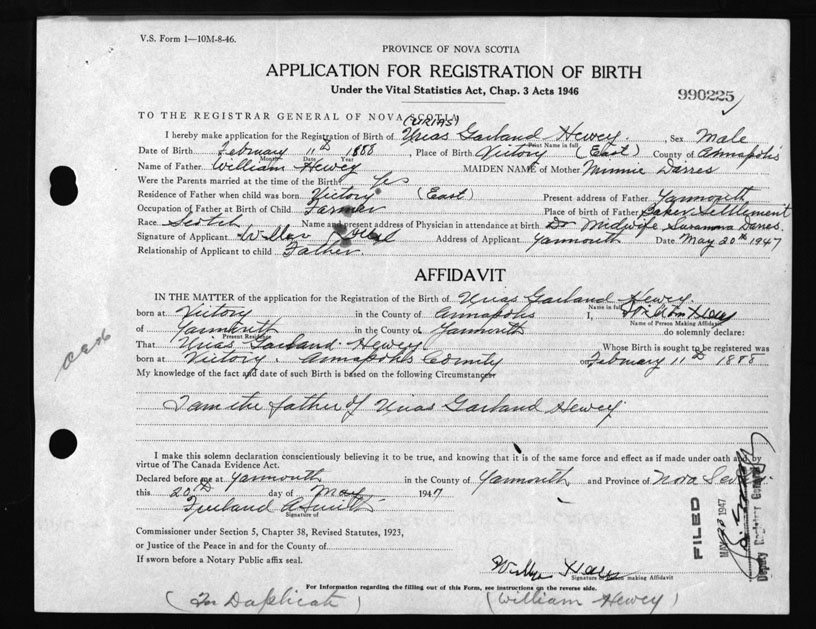 V.S. Form 1—10M-8-46.
PROVINCE OF NOVA SCOTIA
APPLICATION FOR REGISTRATION OF BIRTH
Under the Vital Statistics Act, Chap. 3 Acts 1946
990225
TO THE REGISTRAR GENERAL OF NOVA SCOTIA
(URIAS)
I hereby make application for the Registration of Birth of Urias Garland Hewey, Sex Male
Print Name in full
Date of Birth February 11th 1888, Place of Birth Victory (East) County of Annapolis
Month Date Year
Name of Father William Hewey MAIDEN NAME of Mother Minnie Darres
Were the Parents married at the time of the Birth? Yes
Residence of Father when child was born Victory (East) Present address of Father Yarmouth
Occupation of Father at Birth of Child Farmer Place of birth of Father Baker Settlement
Race Scotch Name and present address of Physician in attendance at birth Dr Midwife Susanna Darres.
Signature of Applicant Address of Applicant Yarmouth Date May 20th 1947
Relationship of Applicant to child Father.
AFFIDAVIT
IN THE MATTER of the application for the Registration of the Birth of Urias Garland Hewey.
Name in full
born at Victory in the County of Annapolis I,
Name of Person Making Affidavit
of Yarmouth in the County of Yarmouth do solemnly declare:
Present Residence
That Urias Garland Hewey Whose Birth is sought to be registered was
born at Victory. Annapolis County on February 11th 1888
My knowledge of the fact and date of such Birth is based on the following Circumstances
I am the father of Urias Garland Hewey
I make this solemn declaration conscientiously believing it to be true, and knowing that it is of the same force and effect as if made under oath and by
virtue of The Canada Evidence Act.
Declared before me at Yarmouth in the County of Yarmouth and Province of Nova Scotia
this 20th day of May 1947
Smith
Signature of
Commissioner under Section 5, Chapter 38, Revised Statutes, 1923,
or Justice of the Peace in and for the County of
If sworn before a Notary Public affix seal.
Signature of Person making Affidavit
FILED
MAY 30 1947
Deputy Registrar General
For Information regarding the filling out of this Form, see instructions on the reverse side.
(In Duplicate) (William Hewey)